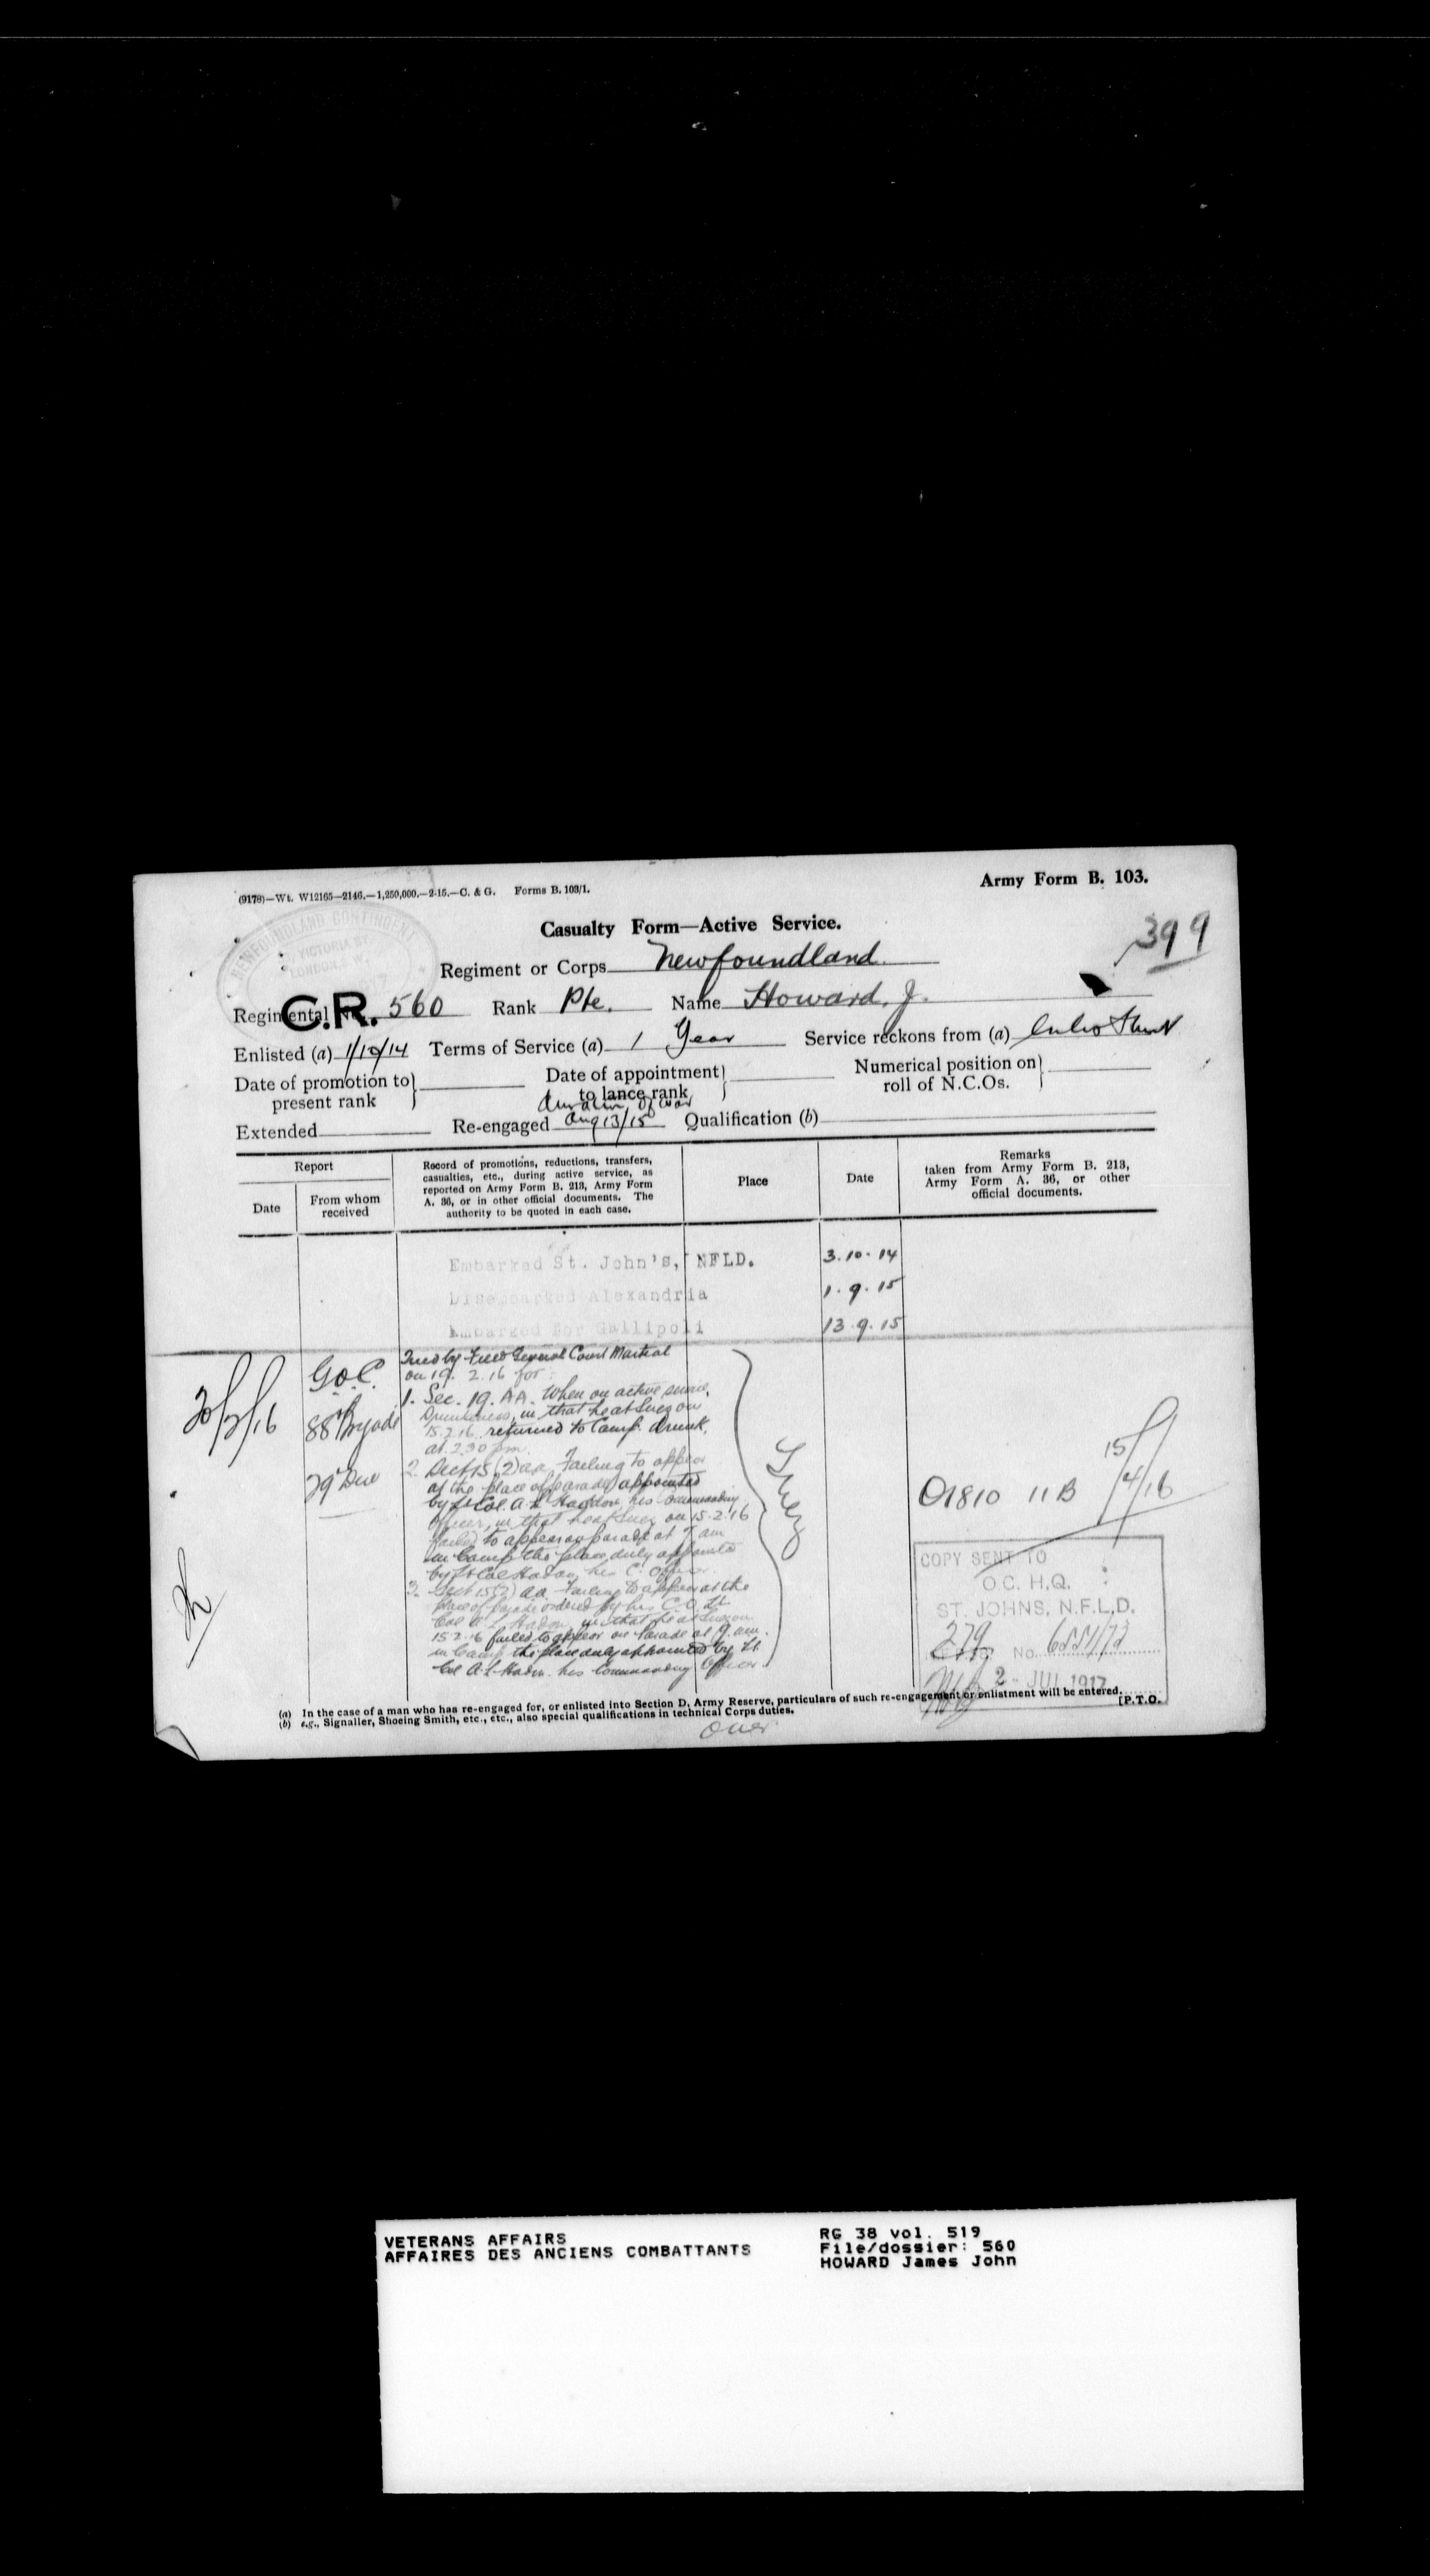 (9178)—Wt. W12165—2146.—1,250,000.—2-15.—C. & G. Forms B. 103/1.
Army Form B. 103.
NEWFOUNDLAND CONTINGENT
VICTORIA ST.
LONDON, S.W.
399
Casualty Form—Active Service.
Regiment or Corps Newfoundland
Regimental No. C.R. 560 Rank Pte. Name Howard, J.
Enlisted (a) 1/10/14 Terms of Service (a) 1 Year Service reckons from (a)
Date of promotion to present rank
Date of appointment to lance rank
Numerical position on roll of N.C.Os.
duration of war
Extended Re-engaged Aug 13/15 Qualification (b)
Report
Date
From whom received
Record of promotions, reductions, transfers, casualties, etc., during active service, as reported on Army Form B. 213, Army Form A. 36, or in other official documents. The authority to be quoted in each case.
Place
Date
Remarks
taken from Army Form B. 213, Army Form A. 36, or other official documents.
Embarked St. John's, NFLD. 3.10.14
Disembarked Alexandria 1.9.15
Embarked for Gallipoli 13.9.15
20/2/16
G.O.C.
88th Brigade
29 Div
Tried by Field General Court Martial
on 19. 2.16 for:
1. Sec. 19. AA. When on active service,
Drunkeness, in that he at Suez on
15.2.16 returned to Camp drunk,
at 2.30 pm.
2. Sect 15 (2) aa. Failing to appear
at the place of parade appointed
by Lt Col. A L Hadow his commanding
Officer, in that he at Suez on 15.2.16
failed to appear on parade at 7 am
in Camp the place duly appointed
by Lt Col Hadow his C. Officer.
3. Sect 15(2) aa. Failing to appear at the
place of parade ordered by his C.O. Lt
Col A L Hadow in that he at Suez on
15.2.16 failed to appear on Parade at 9 am.
in Camp the place duly appointed by Lt
Col A.L. Hadow his Commanding Officer.
Suez
O1810 11B 15/4/16
COPY SENT TO
O.C. H.Q.
ST. JOHNS, N.F.L.D.
279
No. 6551/73
2 - JUL 1917
(a) In the case of a man who has re-engaged for, or enlisted into Section D, Army Reserve, particulars of such re-engagement or enlistment will be entered.
(b) e.g., Signaller, Shoeing Smith, etc., etc., also special qualifications in technical Corps duties.
[P.T.O.
over
VETERANS AFFAIRS
AFFAIRES DES ANCIENS COMBATTANTS
RG 38 vol. 519
File/dossier: 560
HOWARD James John